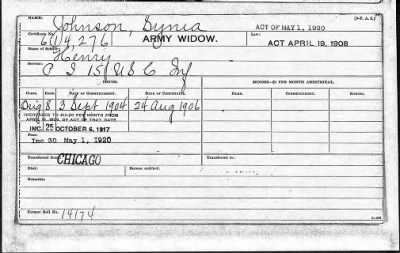 NAME: Johnson, Synia ACT OF MAY 1, 1920 (3-P. A. G.)
Certificate No. 614,276 ARMY WIDOW. LAW: ACT APRIL 19, 1908
Name of Soldier: Henry
Service: P I 15 US C Inf
ISSUE. MINORS—$2 PER MONTH ADDITIONAL.
CLASS. RATE. DATE OF COMMENCEMENT. DATE OF CERTIFICATE.
Orig 8 3 Sept 1904 24 Aug 1906
INCREASED TO $12.00 PER MONTH FROM
APRIL 19, 1908, BY ACT OF THAT DATE.
INC. 25 OCTOBER 6, 1917
30 MAY 1, 1920
Transferred from CHICAGO Transferred to
Died: Bureau notified:
Remarks:
Former Roll No. 14174